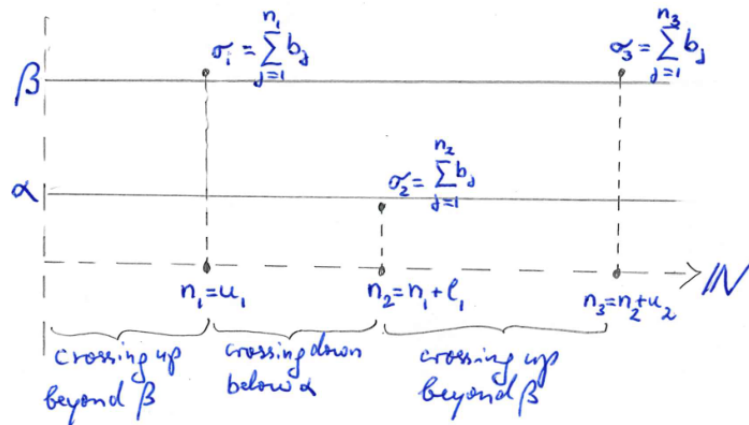 σ₁ = ∑_{j=1}^{n₁} b_j
σ₃ = ∑_{j=1}^{n₃} b_j
β
σ₂ = ∑_{j=1}^{n₂} b_j
α
n₁ = u₁
n₂ = n₁ + l₁
n₃ = n₂ + u₂
ℕ
crossing up
beyond β
crossing down
below α
crossing up
beyond β